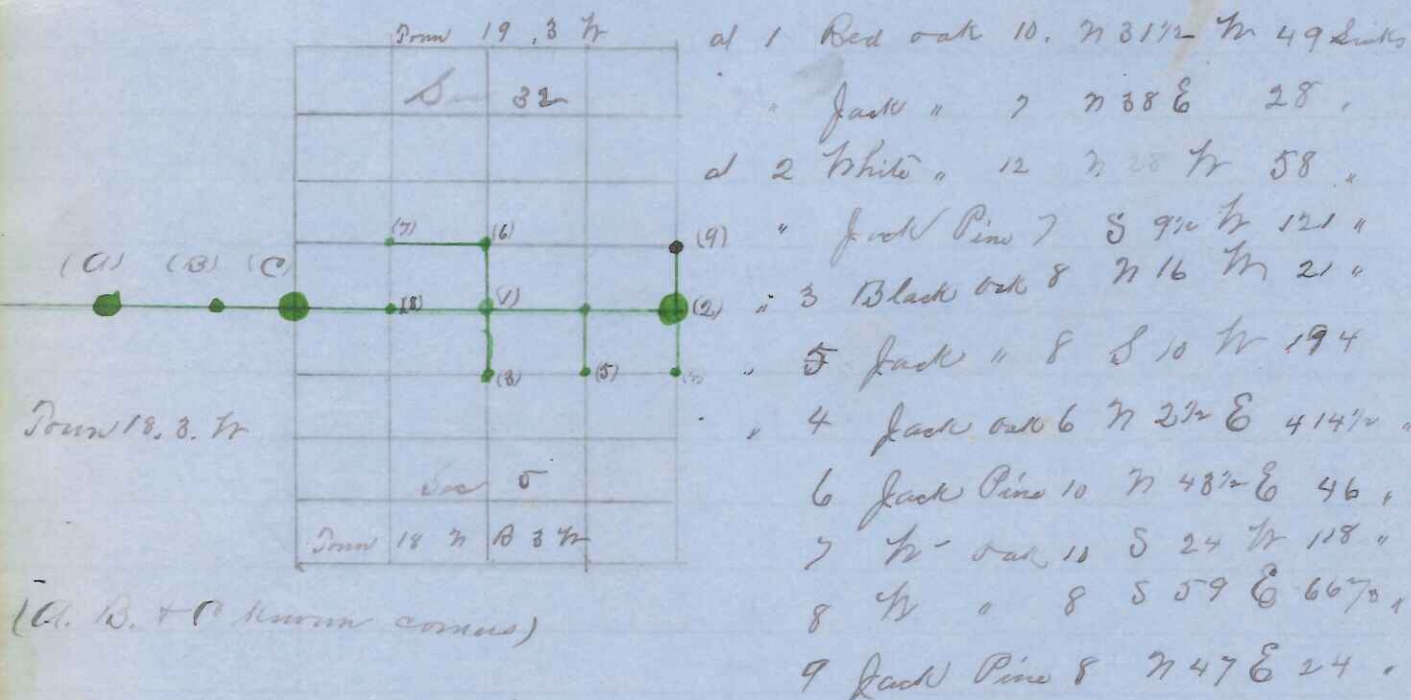 Town 19, 3 W
Sec 32
(7) (6) (9)
(A) (B) (C)
(8) (1) (2)
(3) (5)
Town 18. 3. W
Sec 5
Town 18 N R 3 W
(A. B. + C known corners)
at 1 Red oak 10. N 31 1/2 W 49 Links
" Jack " 7 N 38 E 28 "
at 2 White " 12 N 28 W 58 "
" Jack Pine 7 S 9 1/2 W 121 "
" 3 Black oak 8 N 16 W 21 "
" 5 Jack " 8 S 10 W 194
" 4 Jack oak 6 N 2 1/2 E 414 1/2 "
6 Jack Pine 10 N 43 1/2 E 46 "
7 W - oak 10 S 24 W 118 "
8 W " 8 S 59 E 66 "
9 Jack Pine 8 N 47 E 24 "